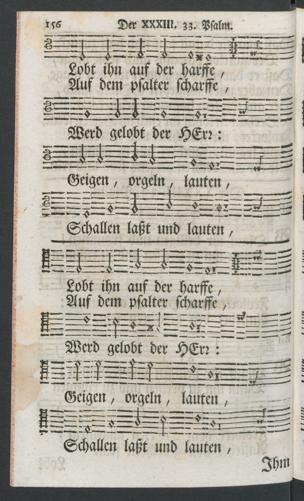 156 Der XXXIII. 33. Psalm.
Lobt ihn auf der harffe,
Auf dem psalter scharffe,
Werd gelobt der HErr:
Geigen, orgeln, lauten,
Schallen laßt und lauten,
Lobt ihn auf der harffe,
Auf dem psalter scharffe,
Werd gelobt der HErr:
Geigen, orgeln, lauten,
Schallen laßt und lauten,
Ihm